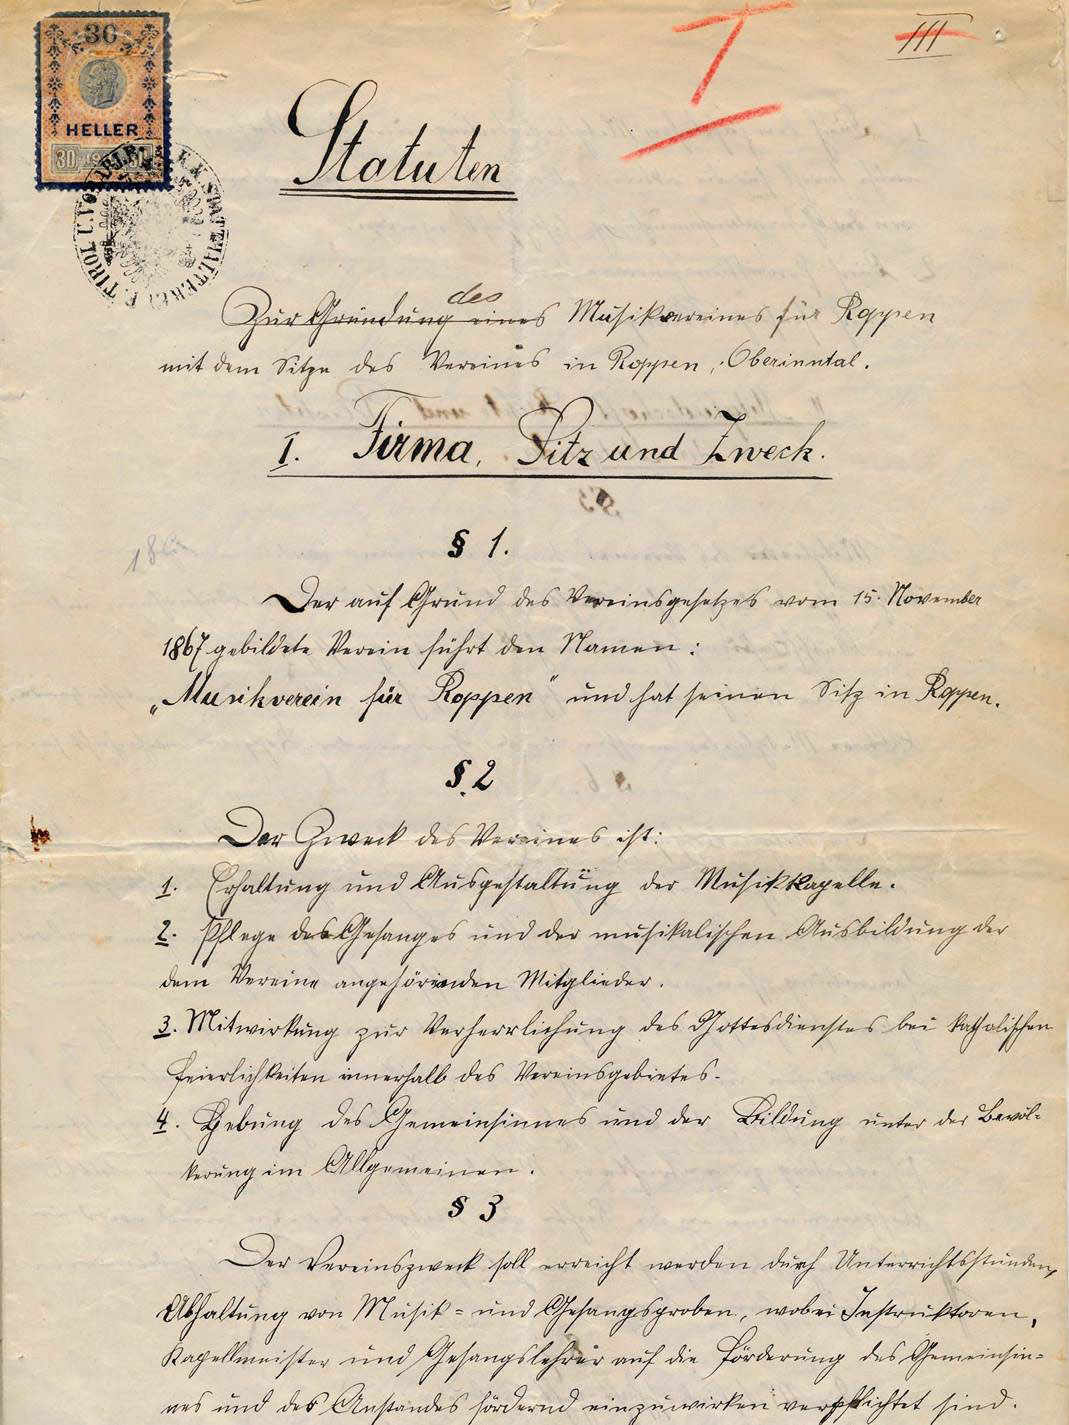 30
HELLER
30
I
III
Statuten
des
Zur Gründung eines Musikvereines für Roppen
mit dem Sitze des Vereines in Roppen, Oberinntal.
I. Firma, Sitz und Zweck.
§ 1.
Der auf Grund des Vereinsgesetzes vom 15. November
1867 gebildete Verein führt den Namen:
„Musikverein für Roppen" und hat seinen Sitz in Roppen.
§. 2
Der Zweck des Vereines ist:
1. Erhaltung und Ausgestaltung der Musikkapelle.
2. Pflege des Gesanges und der musikalischen Ausbildung der
dem Vereine angehörinden Mitglieder.
3. Mitwirkung zur Verherrlichung des Gottesdienstes bei katholischen
Feierlichkeiten innerhalb des Vereinsgebietes.
4. Hebung des Gemeinsinnes und der Bildung unter der Bevöl-
kerung im Allgemeinen.
§ 3
Der Vereinszweck soll erreicht werden durch Unterrichtsstunden,
Abhaltung von Musik- und Gesangsproben, wobei Instruktoren,
Kapellmeister und Gesangslehrer auf die Förderung des Gemeinsin-
nes und des Anstandes fördernd einzuwirken verpflichtet sind.